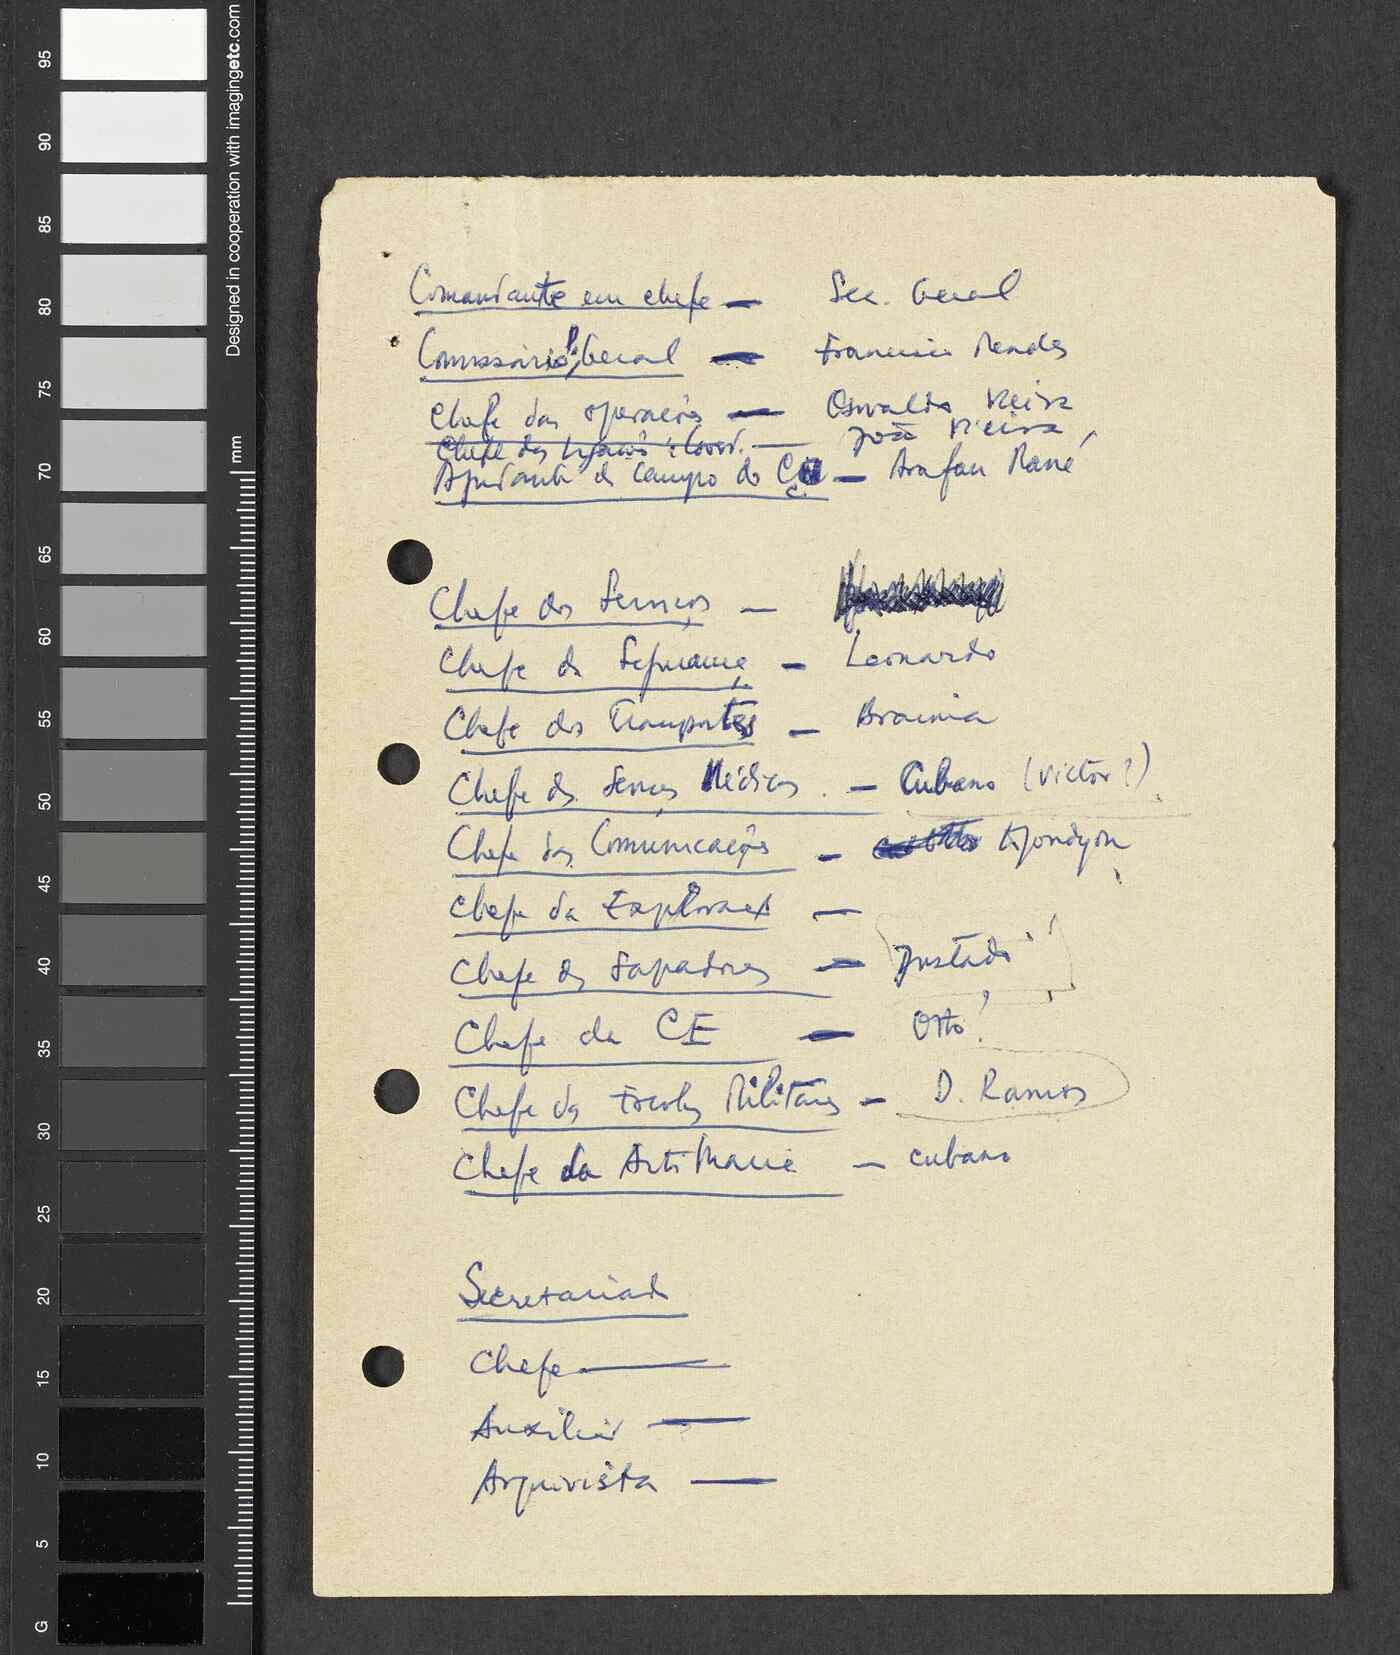 Comandante em chefe — Sec. Geral
Comissário P. Geral — Francisco Mendes
Chefe das operações — Osvaldo Vieira
Chefe das Ligações — João Vieira
Ajudante de Campo do C. C. — Arafan Mané
Chefe dos Serviços —
Chefe da Segurança — Leonardo
Chefe dos Transportes — Braima
Chefe dos Serviços Médicos — Cubano (Victor?)
Chefe das Comunicações —
Chefe da Exploraç —
Chefe dos Sapadores — Justado
Chefe da CE — Otto!
Chefe das Escolas Militares — D. Ramos
Chefe da Artilharia — cubano
Secretariado
Chefe —
Auxiliar —
Arquivista —
95
90
85
80
75
70
65
60
55
50
45
40
35
30
25
20
15
10
5
G
Designed in cooperation with imagingetc.com
mm